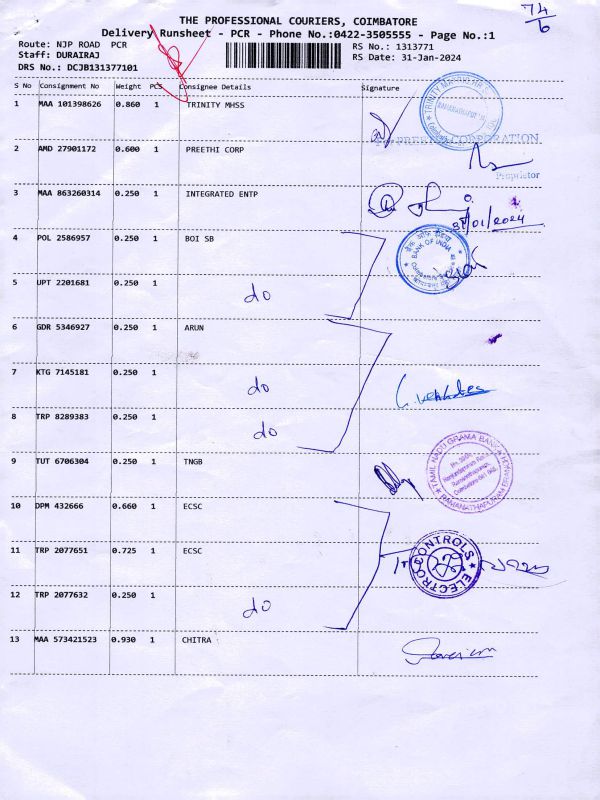 74/6
THE PROFESSIONAL COURIERS, COIMBATORE
Delivery Runsheet - PCR - Phone No.:0422-3505555 - Page No.:1
Route: NJP ROAD PCR
RS No.: 1313771
Staff: DURAIRAJ
RS Date: 31-Jan-2024
DRS No.: DCJB131377101
S No Consignment No Weight PCS Consignee Details Signature
1 MAA 101398626 0.860 1 TRINITY MHSS
2 AMD 27901172 0.600 1 PREETHI CORP
PREETHI CORPORATION
Proprietor
3 MAA 863260314 0.250 1 INTEGRATED ENTP
31/01/2024
4 POL 2586957 0.250 1 BOI SB
BANK OF INDIA
5 UPT 2201681 0.250 1 do
6 GDR 5346927 0.250 1 ARUN
7 KTG 7145181 0.250 1 do
8 TRP 8289383 0.250 1 do
9 TUT 6706304 0.250 1 TNGB
TAMIL NADU GRAMA BANK
RAMANATHAPURAM BRANCH
10 DPM 432666 0.660 1 ECSC
11 TRP 2077651 0.725 1 ECSC
ELECTRO CONTROLS
12 TRP 2077632 0.250 1 do
13 MAA 573421523 0.930 1 CHITRA